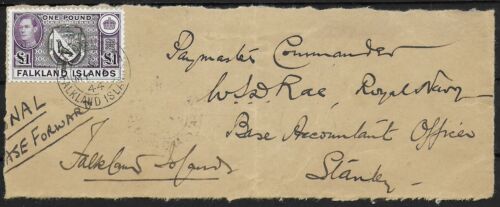 ONE POUND
£1 £1
FALKLAND ISLANDS
44
FALKLAND ISLA
Paymaster Commander
W.S.D. Rae, Royal Navy
Base Accountant Officer
Stanley
NAL
ASE FORWARD
Falkland Islands